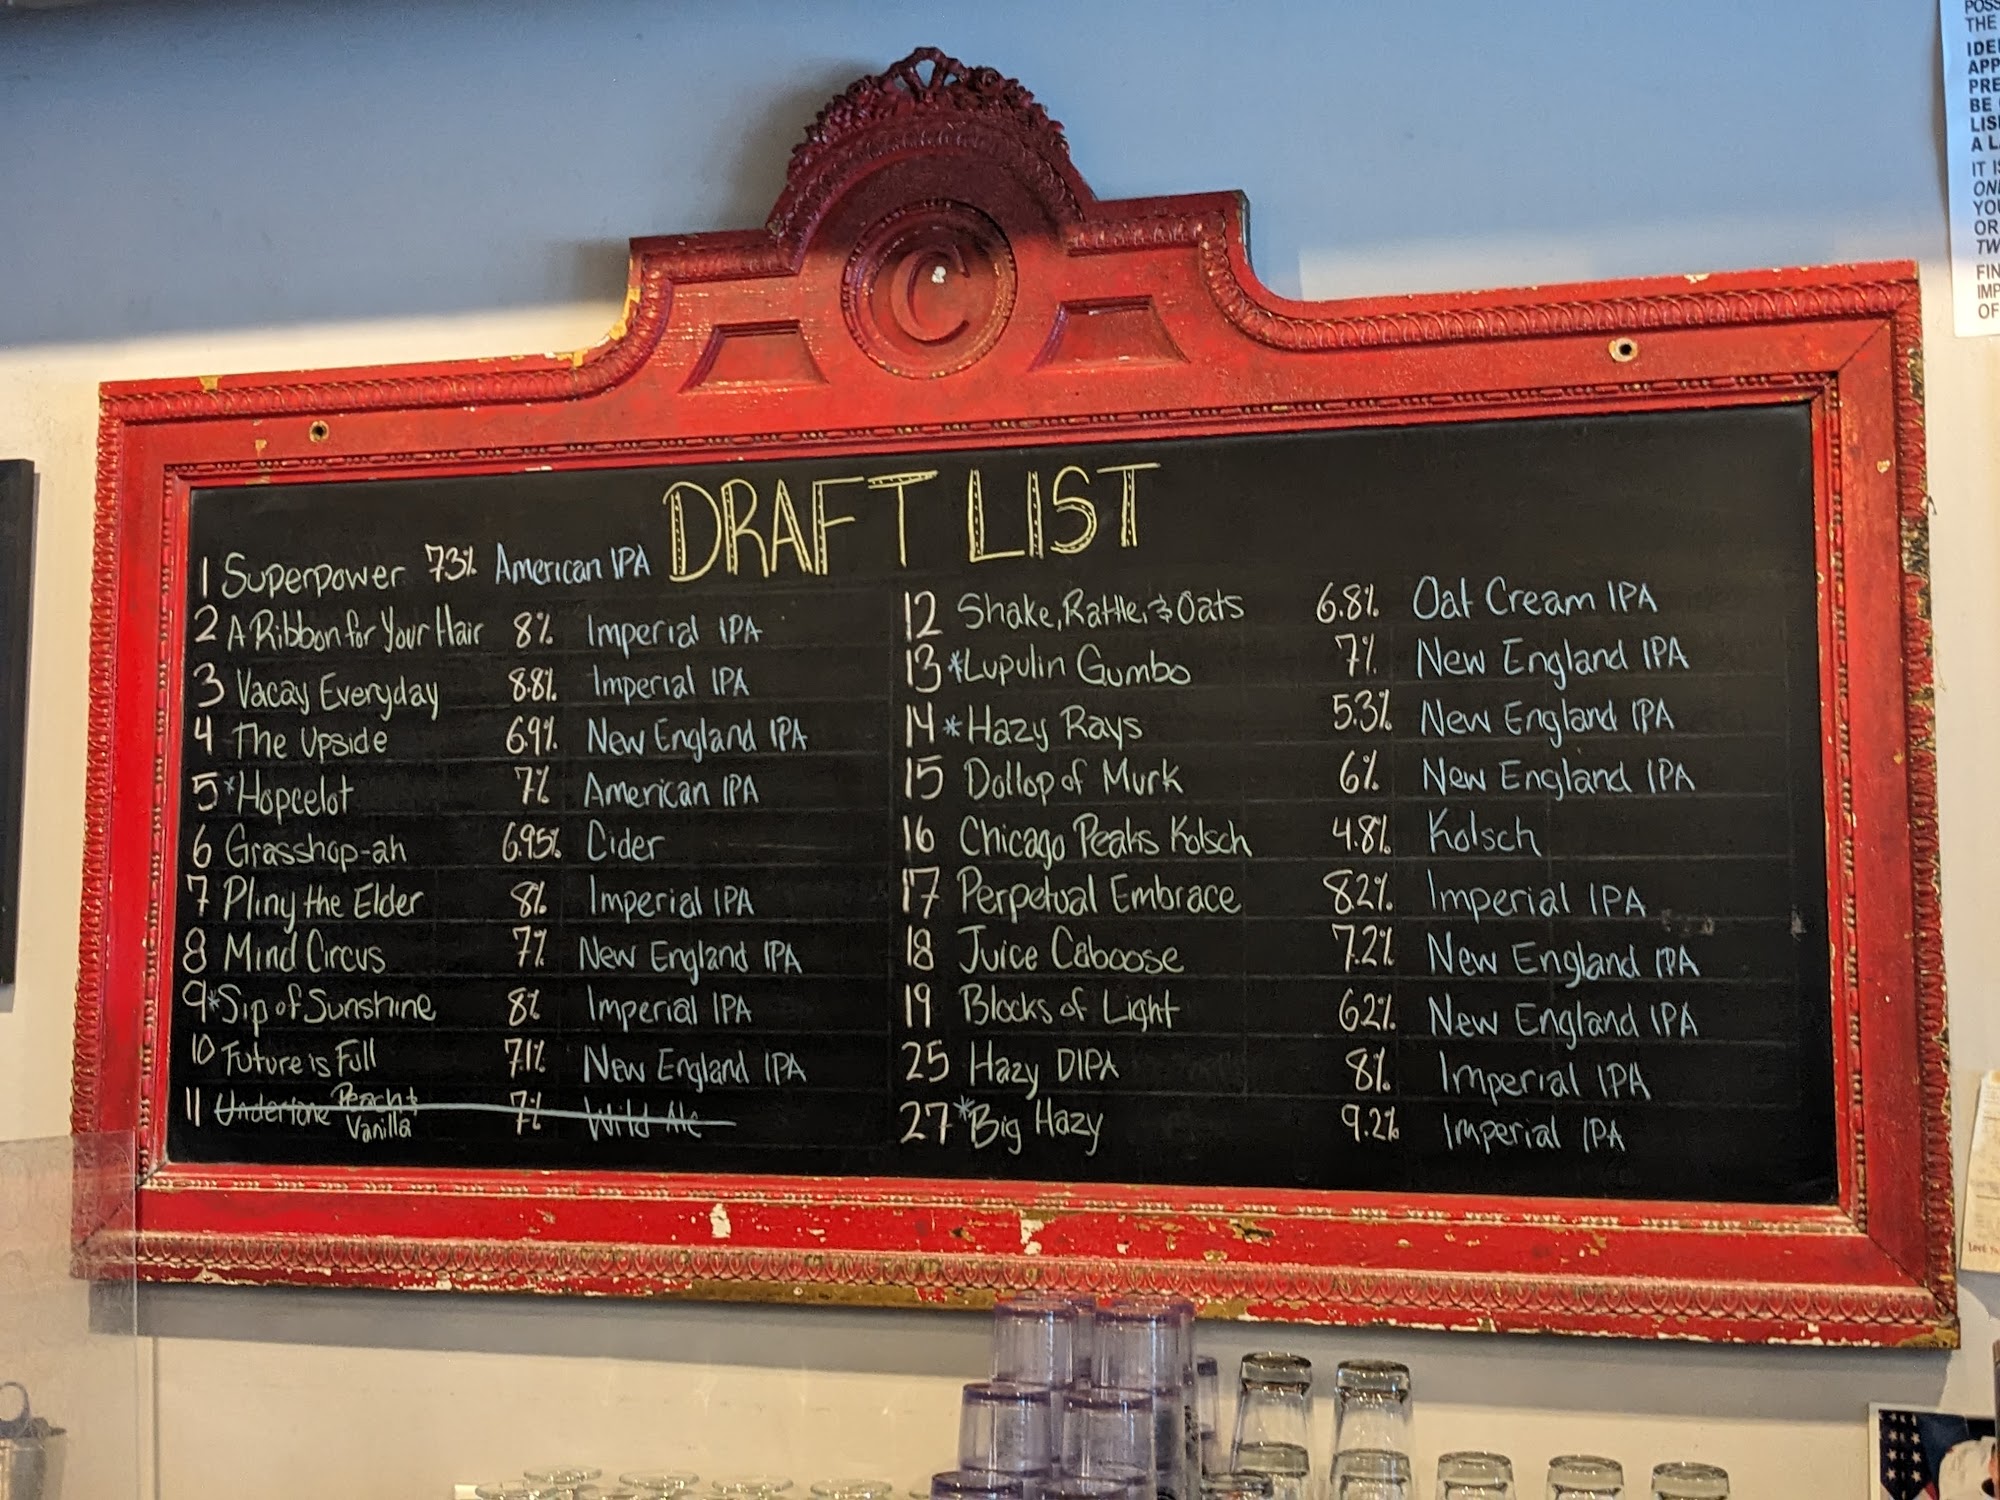 C
DRAFT LIST
1 Superpower 7.3% American IPA
2 A Ribbon for Your Hair 8% Imperial IPA
3 Vacay Everyday 8.8% Imperial IPA
4 The Upside 6.9% New England IPA
5 *Hopcelot 7% American IPA
6 Grasshop-ah 6.95% Cider
7 Pliny the Elder 8% Imperial IPA
8 Mind Circus 7% New England IPA
9 *Sip of Sunshine 8% Imperial IPA
10 Future is Full 7.1% New England IPA
11 Undertone Peach + Vanilla 7% Wild Ale
12 Shake, Rattle, & Oats 6.8% Oat Cream IPA
13 *Lupulin Gumbo 7% New England IPA
14 *Hazy Rays 5.3% New England IPA
15 Dollop of Murk 6% New England IPA
16 Chicago Peaks Kolsch 4.8% Kolsch
17 Perpetual Embrace 8.2% Imperial IPA
18 Juice Caboose 7.2% New England IPA
19 Blocks of Light 6.2% New England IPA
25 Hazy DIPA 8% Imperial IPA
27 *Big Hazy 9.2% Imperial IPA
THE
BE
A
IT
OR
OF